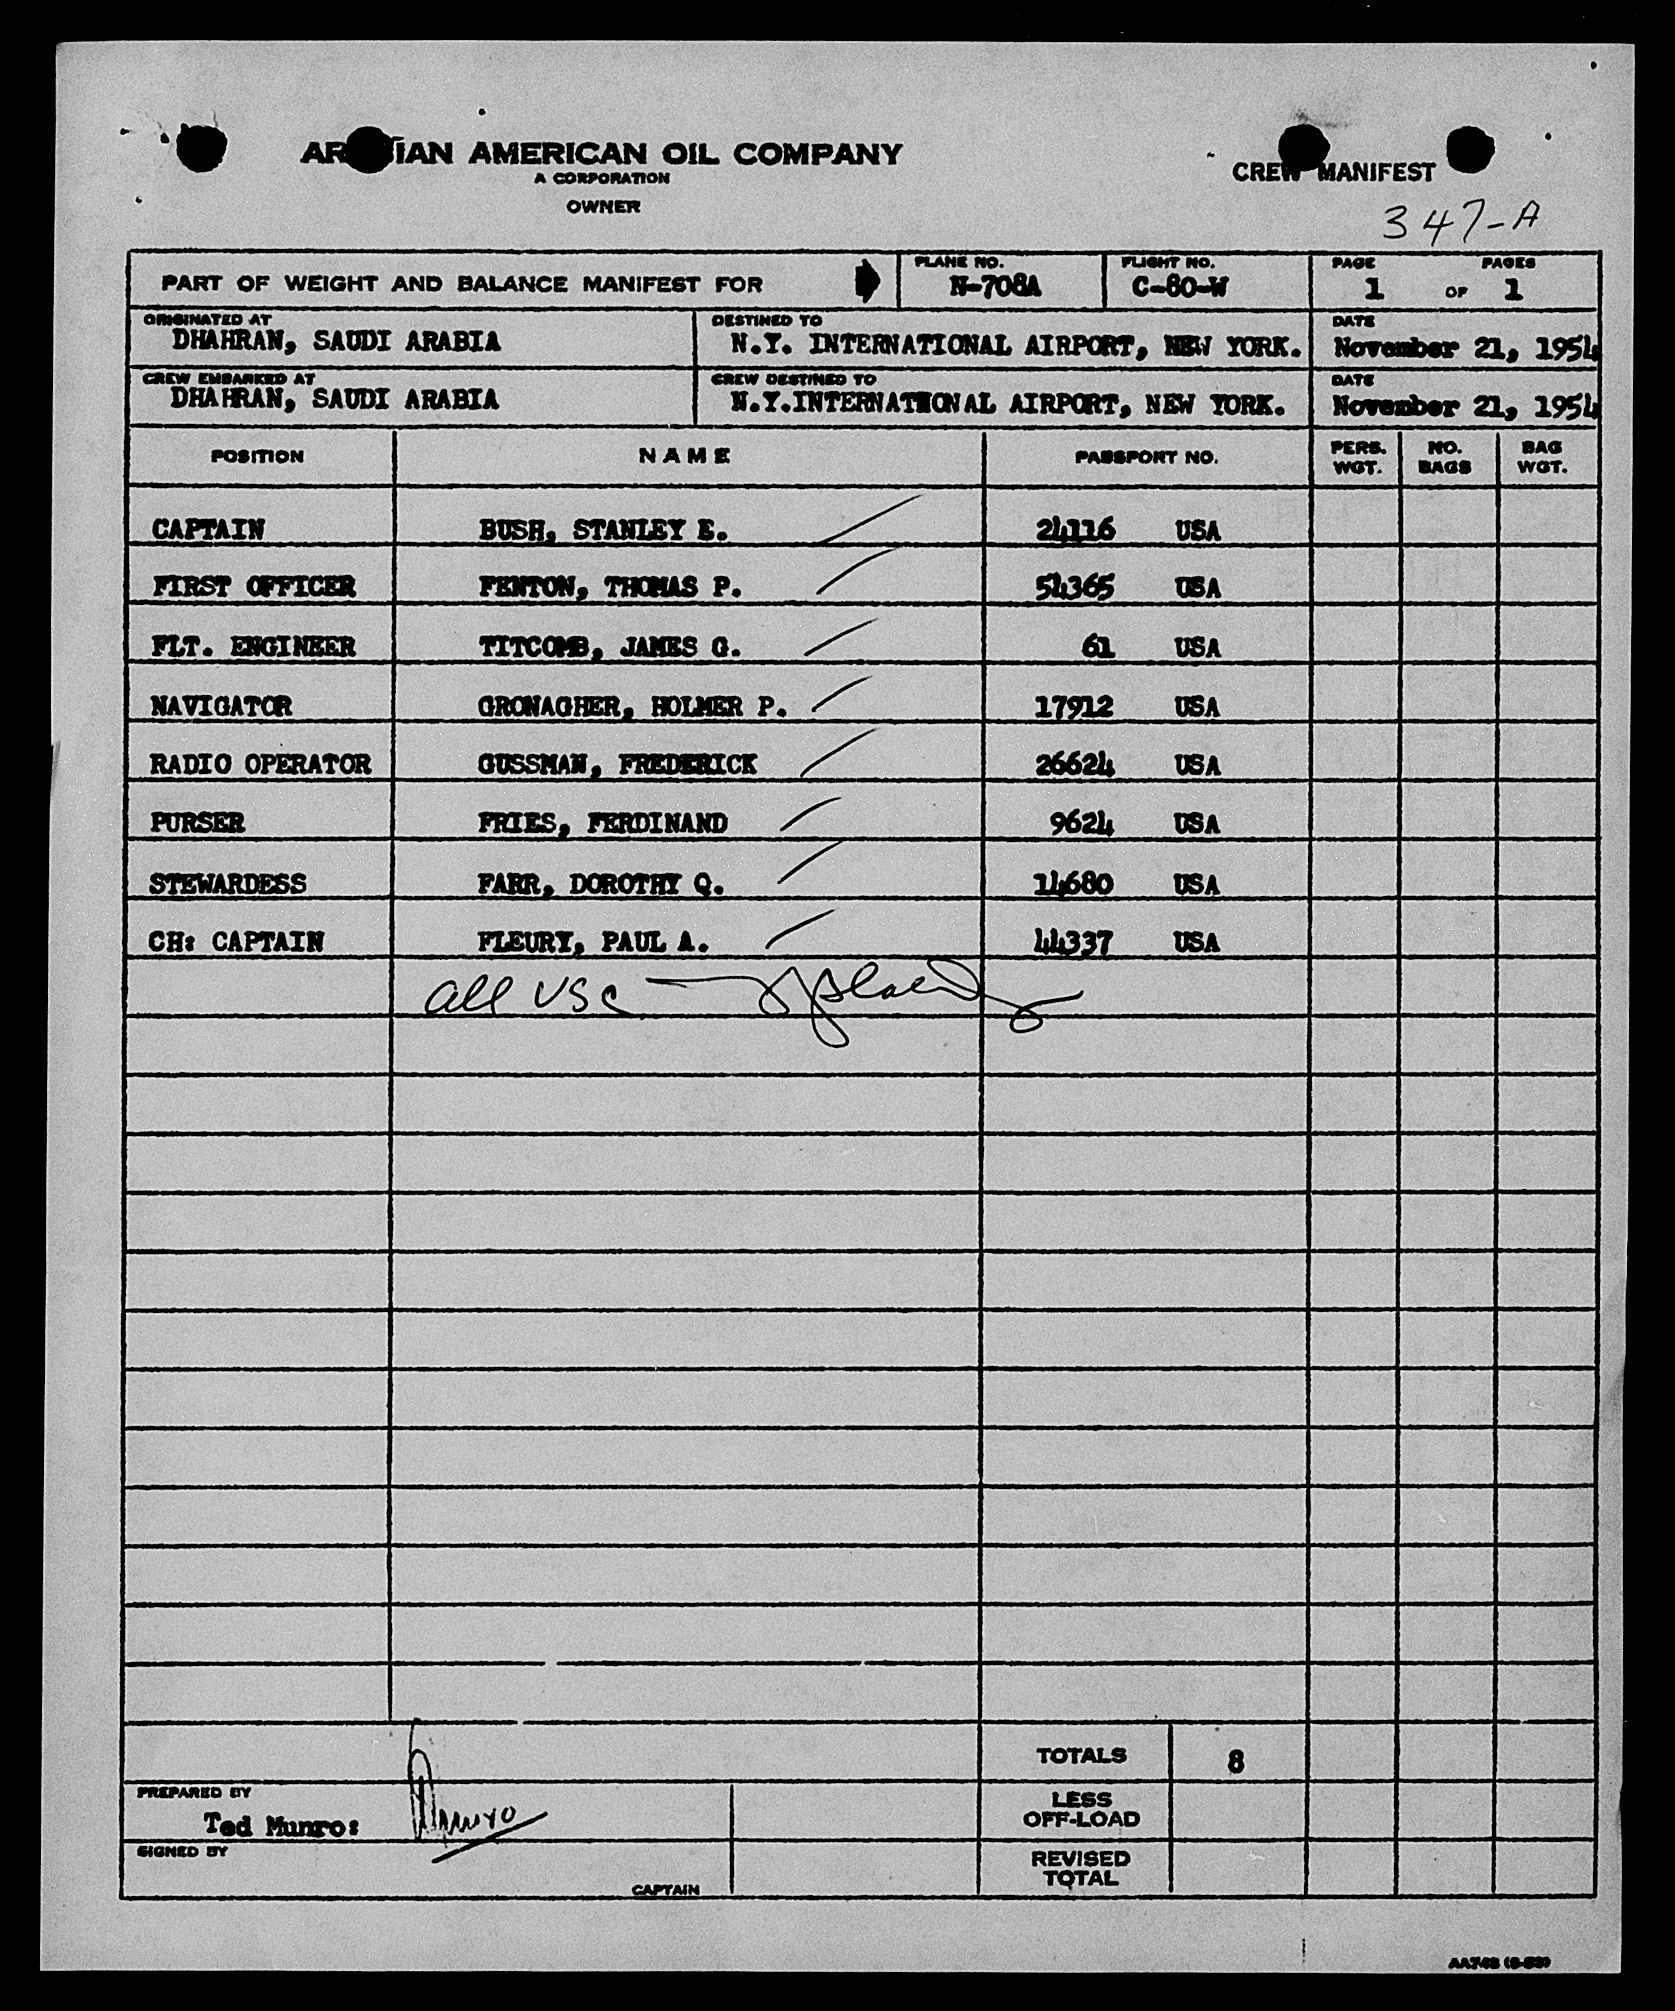 ARABIAN AMERICAN OIL COMPANY
A CORPORATION
OWNER
CREW MANIFEST
347-A
PART OF WEIGHT AND BALANCE MANIFEST FOR
PLANE NO.
N-708A
FLIGHT NO.
C-80-W
PAGE PAGES
1 OF 1
ORIGINATED AT
DHAHRAN, SAUDI ARABIA
DESTINED TO
N.Y. INTERNATIONAL AIRPORT, NEW YORK.
DATE
November 21, 1954
CREW EMBARKED AT
DHAHRAN, SAUDI ARABIA
CREW DESTINED TO
N.Y.INTERNATIONAL AIRPORT, NEW YORK.
DATE
November 21, 1954
POSITION NAME PASSPORT NO. PERS. WGT. NO. BAGS BAG WGT.
CAPTAIN BUSH, STANLEY E. 24116 USA
FIRST OFFICER FENTON, THOMAS P. 54365 USA
FLT. ENGINEER TITCOMB, JAMES G. 61 USA
NAVIGATOR GRONAGHER, HOLMER P. 17912 USA
RADIO OPERATOR GUSSMAN, FREDERICK 26624 USA
PURSER FRIES, FERDINAND 9624 USA
STEWARDESS FARR, DOROTHY Q. 14680 USA
CH: CAPTAIN FLEURY, PAUL A. 44337 USA
all USC
TOTALS 8
PREPARED BY
Ted Munro: Munro
LESS
OFF-LOAD
SIGNED BY
CAPTAIN
REVISED
TOTAL